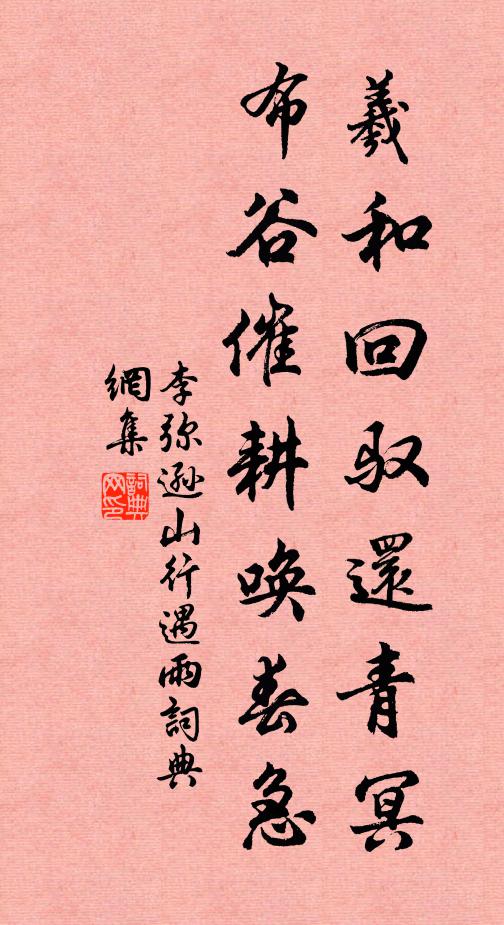 羲和回驭還青冥
布谷催耕唤春急
李弥遜山行遇雨詞典
網集
詞典網印